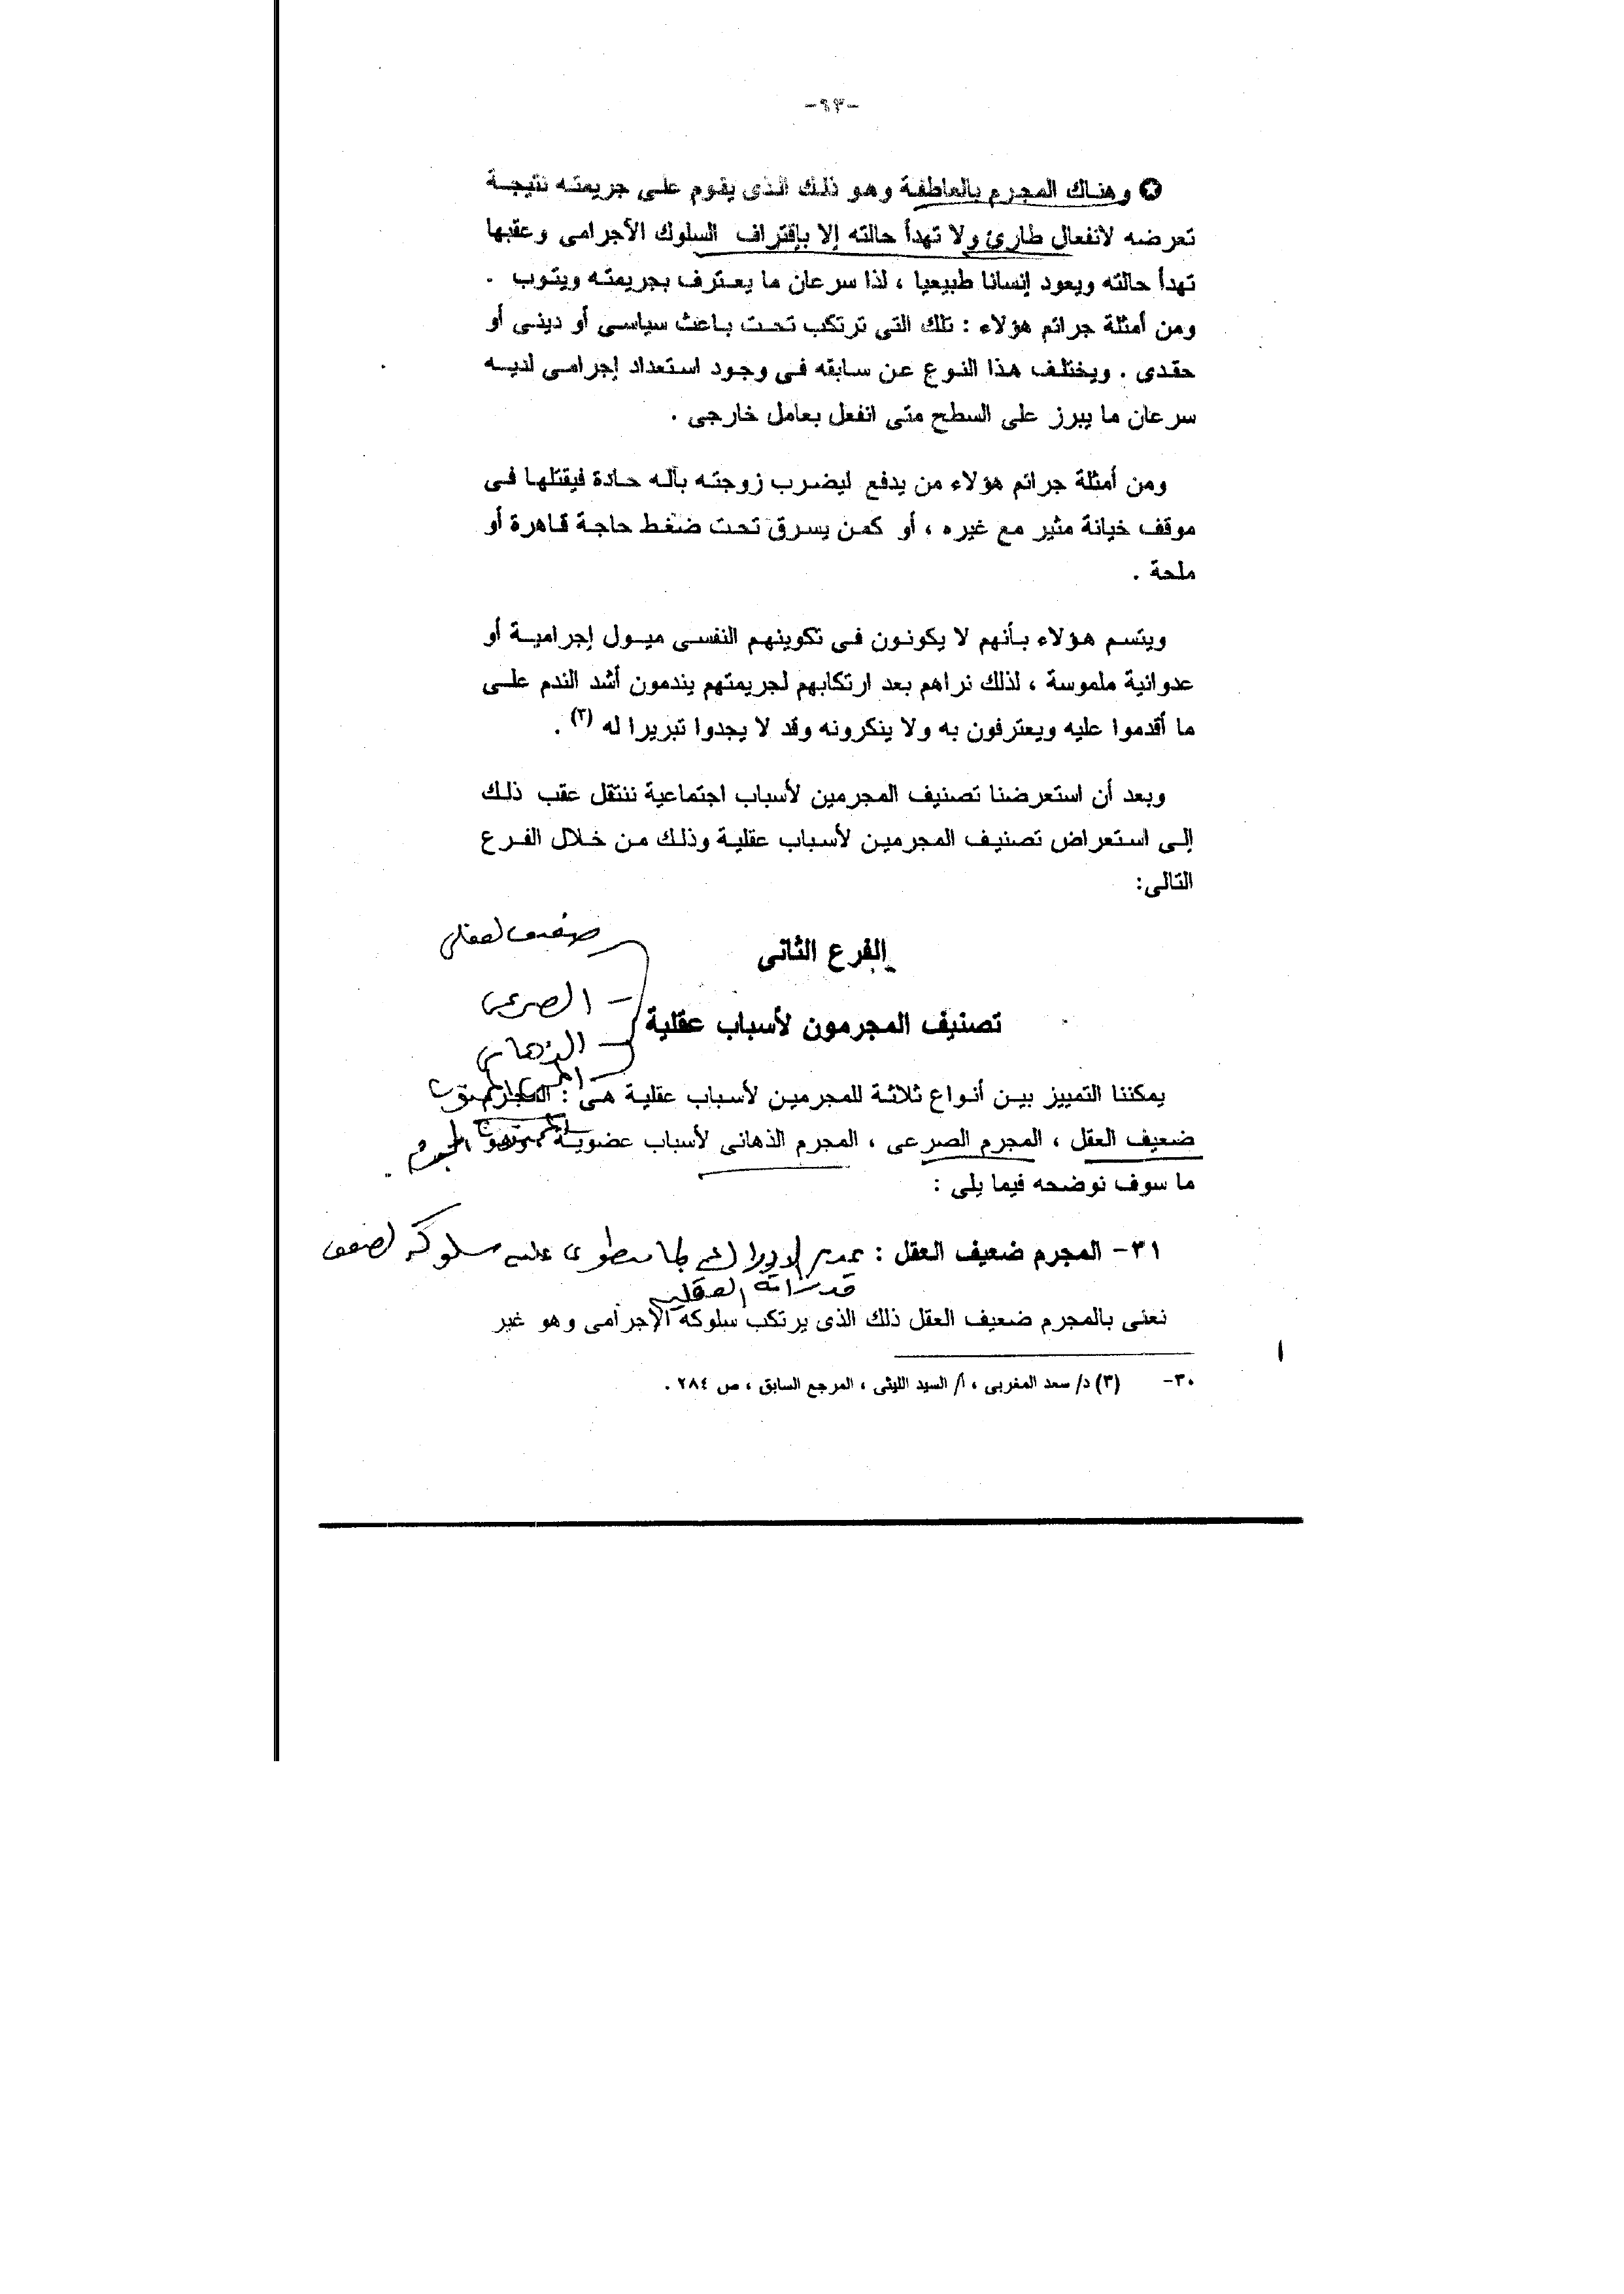 -٦٣-
✪ وهناك المجرم بالعاطفة وهو ذلك الذى يقوم على جريمته نتيجة
تعرضه لانفعال طارئ ولا تهدأ حالته إلا بإقتراف السلوك الأجرامى وعقبها
تهدأ حالته ويعود إنسانا طبيعيا ، لذا سرعان ما يعترف بجريمته ويتوب .
ومن أمثلة جرائم هؤلاء : تلك التى ترتكب تحت باعث سياسى أو دينى أو
حقدى . ويختلف هذا النوع عن سابقه فى وجود استعداد إجرامى لديه
سرعان ما يبرز على السطح متى انفعل بعامل خارجى .
ومن أمثلة جرائم هؤلاء من يدفع ليضرب زوجته بآله حادة فيقتلها فى
موقف خيانة مثير مع غيره ، أو كمن يسرق تحت ضغط حاجة قاهرة أو
ملحة .
ويتسم هؤلاء بأنهم لا يكونون فى تكوينهم النفسى ميول إجرامية أو
عدوانية ملموسة ، لذلك نراهم بعد ارتكابهم لجريمتهم يندمون أشد الندم على
ما أقدموا عليه ويعترفون به ولا ينكرونه وقد لا يجدوا تبريرا له (٣) .
وبعد أن استعرضنا تصنيف المجرمين لأسباب اجتماعية ننتقل عقب ذلك
إلى استعراض تصنيف المجرمين لأسباب عقلية وذلك من خلال الفرع
التالى:
ضعيف العقل
الفرع الثانى
- الصرعى
تصنيف المجرمون لأسباب عقلية
- الذهانى
يمكننا التمييز بين أنواع ثلاثة للمجرمين لأسباب عقلية هى : المجرم
ضعيف العقل ، المجرم الصرعى ، المجرم الذهانى لأسباب عضوية وهو
ما سوف نوضحه فيما يلى :
٣١- المجرم ضعيف العقل : عديم الادراك لما ينطوى عليه سلوكه لضعف
قدراته العقلية
نعنى بالمجرم ضعيف العقل ذلك الذى يرتكب سلوكه الإجرامى وهو غير
٣٠- (٣) د/ سعد المغربى ، أ/ السيد الليثى ، المرجع السابق ، ص ٢٨٤ .